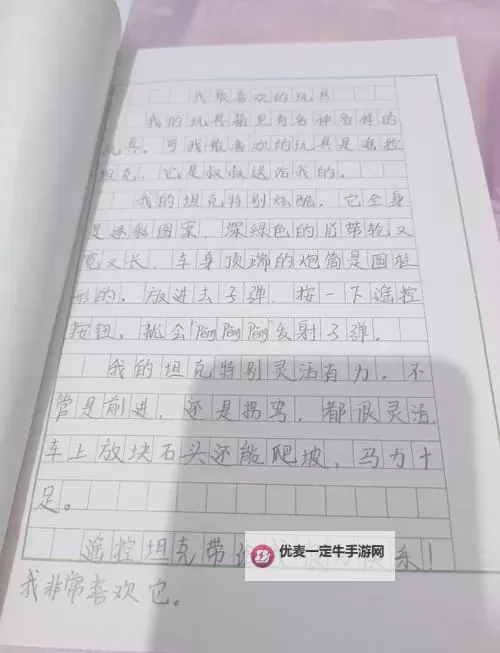 我最喜欢的玩具
我的玩具箱里有各种各样的
玩具。可我最喜欢的玩具是遥控
坦克，它是叔叔送给我的。
我的坦克特别炫酷。它全身
是迷彩图案，深绿色的履带轮又
宽又长，车身顶端的炮筒是圆柱
形的。放进去子弹，按一下遥控
按钮，就会"Pēng Pēng Pēng"发射子弹。
我的坦克特别灵活有力。不
管是前进，还是拐弯，都很灵活，
车上放块石头还能爬坡，马力十
足。
遥控坦克带给我 快乐！
我非常喜欢它。
优麦一定牛手游网